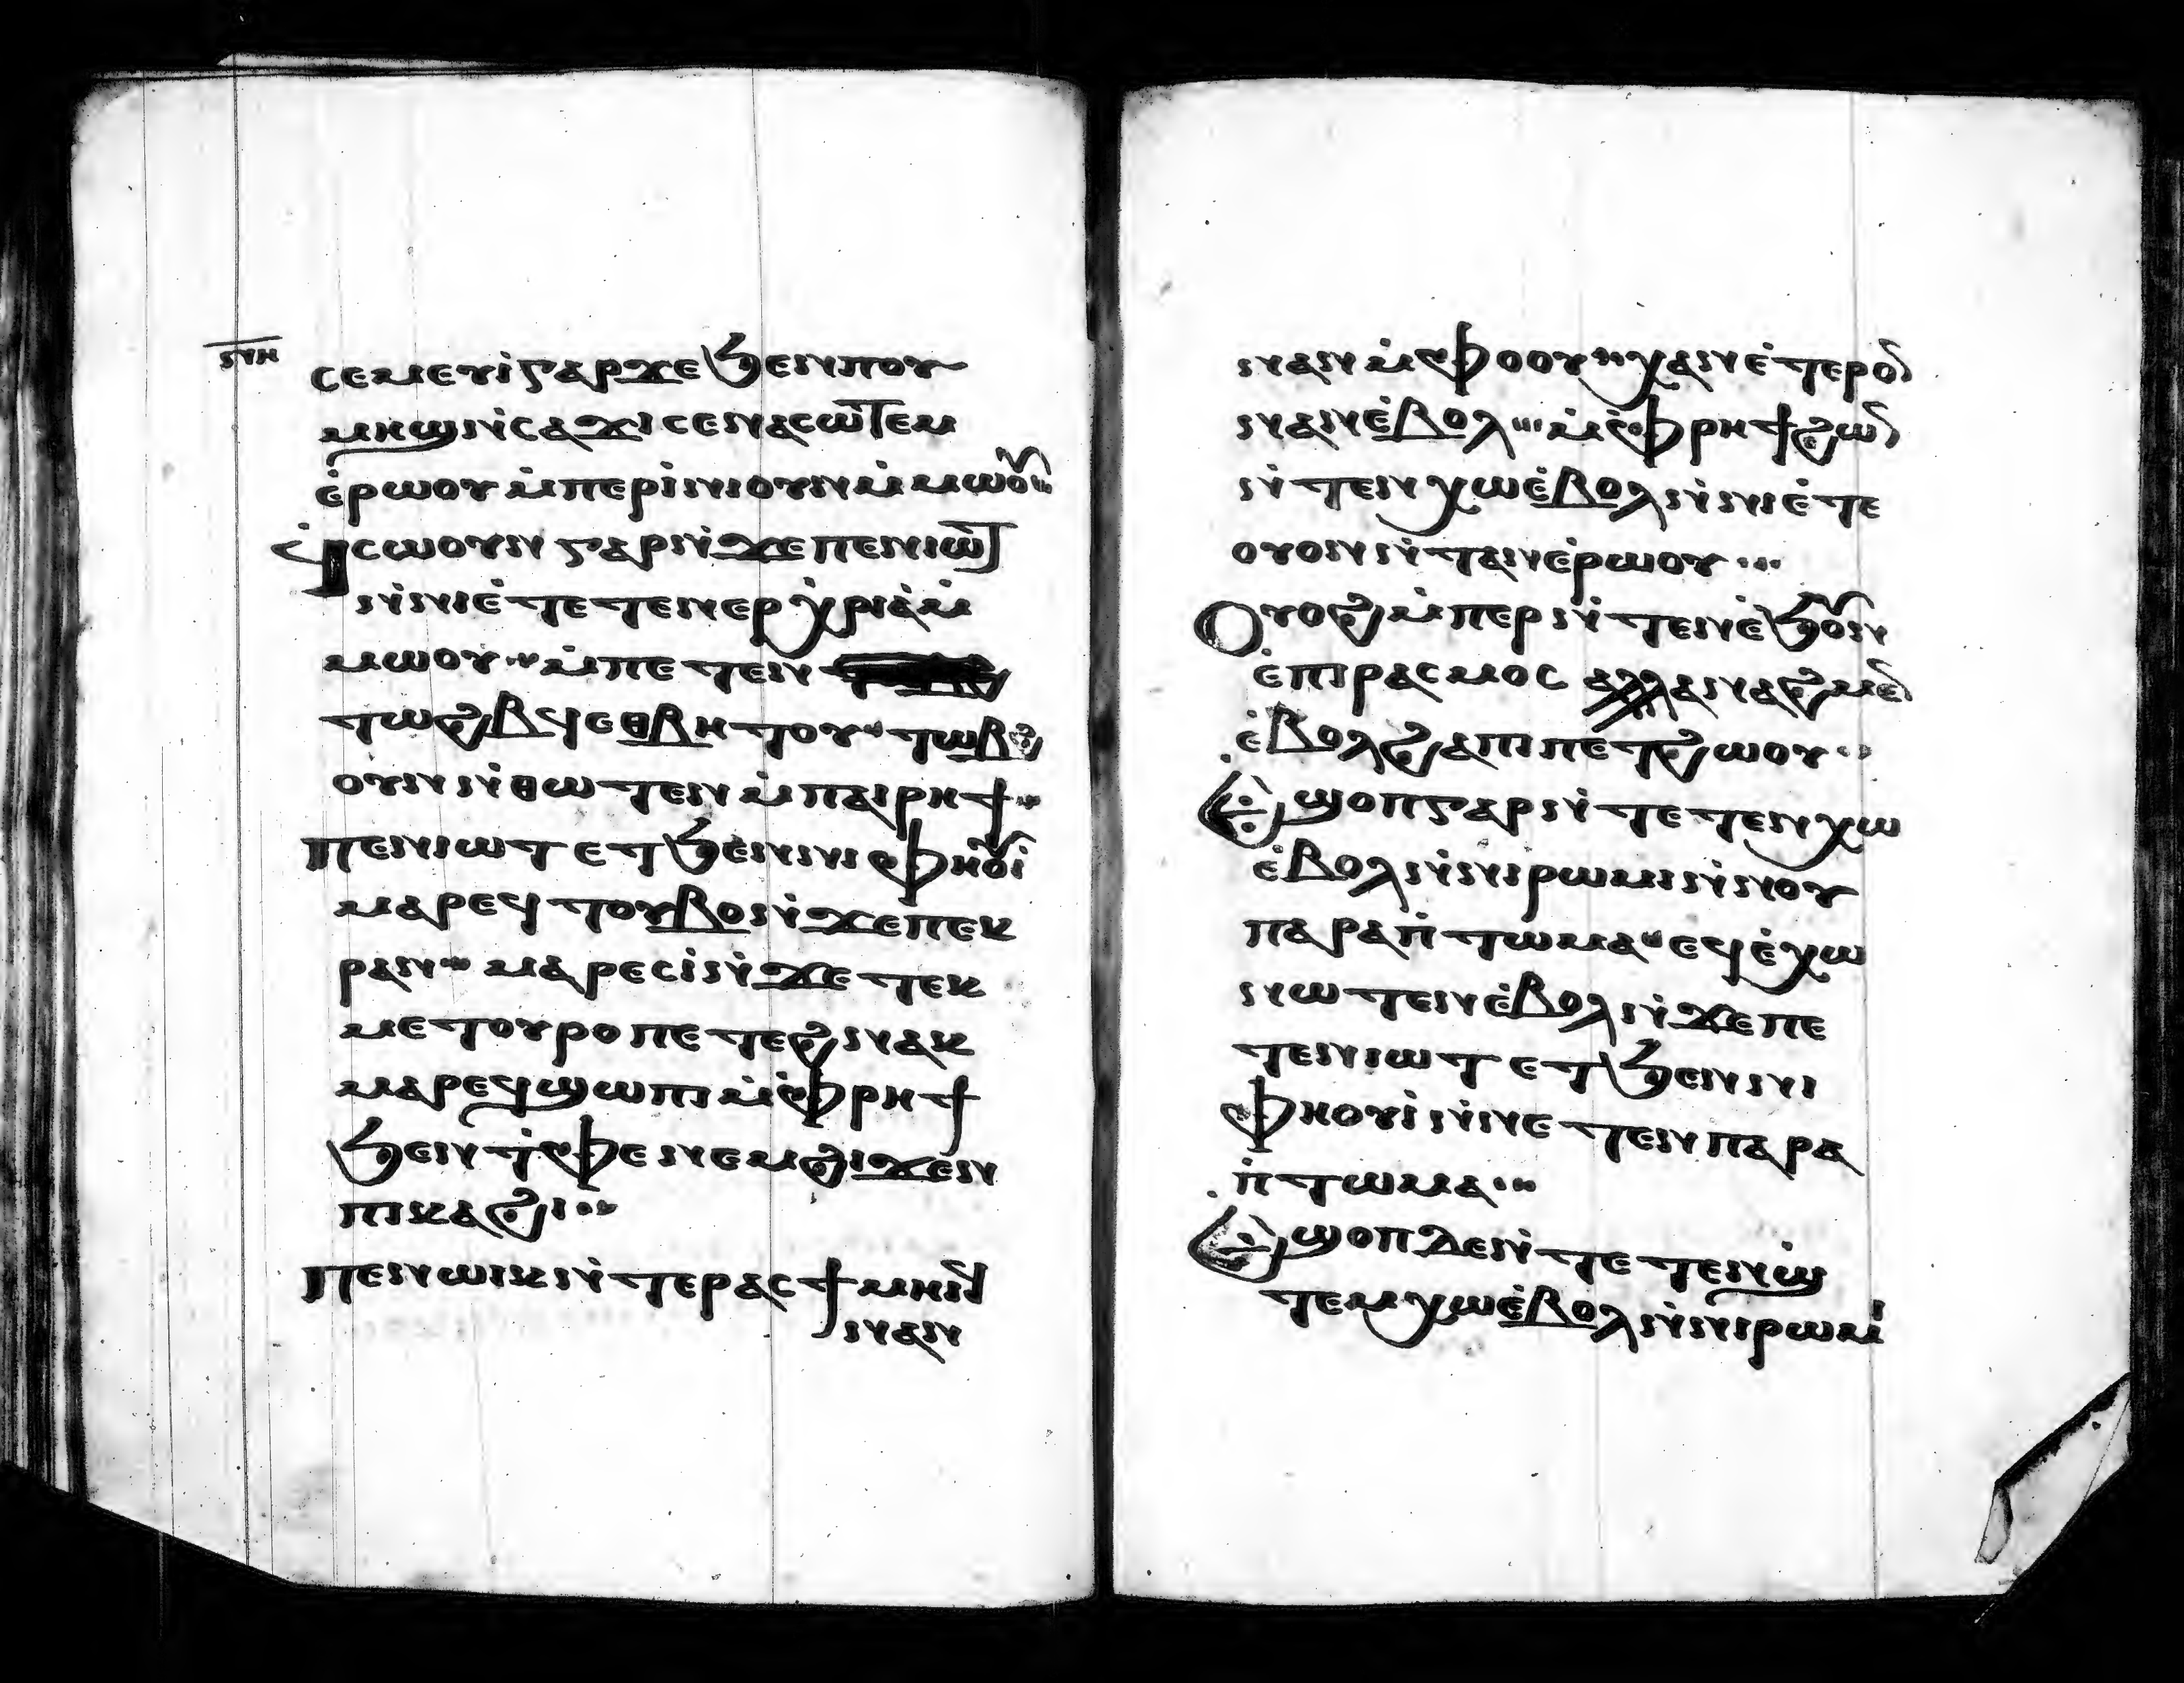 ⲛⲏ
ⲥⲉⲙⲉⲩⲓ̀ⲅⲁⲣϫⲉϧⲉⲛⲡⲟⲩ
ⲙⲏϣⲛ̀ⲥⲁϫⲓⲥⲉⲛⲁⲥⲱⲧⲉⲙ
ⲉ̀ⲣⲱⲟⲩⲙ̀ⲡⲉⲣⲓ̀ⲛⲓⲟⲩⲛⲙ̀ⲙⲱⲟⲩ
ϥ̀ⲥⲱⲟⲩⲛⲅⲁⲣⲛ̀ϫⲉⲡⲉⲛⲓⲱⲧ
ⲛ̀ⲛⲓⲉ̀ⲧⲉⲧⲉⲛⲉⲣⲭ̀ⲣⲓⲁ̀ⲙ̀
ⲙⲱⲟⲩ ⲙ̀ⲡⲉⲧⲉⲛ
ⲧⲱϩⲃϥⲉⲑⲃⲏⲧⲟⲩ ⲧⲱⲃϩ
ⲟⲩⲛⲛ̀ⲑⲱⲧⲉⲛⲙ̀ⲡⲁⲓⲣⲏϯ
ⲡⲉⲛⲓⲱⲧⲉⲧϧⲉⲛⲛⲓⲫⲏⲟⲩⲓ̀
ⲙⲁⲣⲉϥⲧⲟⲩⲃⲟⲛ̀ϫⲉⲡⲉⲕ
ⲣⲁⲛ ⲙⲁⲣⲉⲥⲓ̀ⲛ̀ϫⲉⲧⲉⲕ
ⲙⲉⲧⲟⲩⲣⲟⲡⲉⲧⲉϩⲛⲁⲕ
ⲙⲁⲣⲉϥϣⲱⲡⲓⲙ̀ⲫⲣⲏϯ
ϧⲉⲛⲧ̀ⲫⲉⲛⲉⲙϩⲓϫⲉⲛ
ⲡⲓⲕⲁϩⲓ
ⲡⲉⲛⲱⲓⲕⲛ̀ⲧⲉⲣⲁⲥϯⲙⲏⲓϥ
ⲛⲁⲛ
ⲛⲁⲛⲙ̀ⲫⲟⲟⲩ ⲭⲁⲛⲉ̀ⲧⲉⲣⲟⲛ
ⲛⲁⲛⲉ̀ⲃⲟⲗ ⲙ̀ⲫⲣⲏϯϩⲱⲛ
ⲛ̀ⲧⲉⲛⲭⲱⲉ̀ⲃⲟⲗⲛ̀ⲛⲓⲉ̀ⲧⲉ
ⲟⲩⲟⲛⲛ̀ⲧⲁⲛⲉ̀ⲣⲱⲟⲩ
ⲟⲩⲟϩⲙ̀ⲡⲉⲣⲛ̀ⲧⲉⲛⲉ̀ϧⲟⲩⲛ
ⲉ̀ⲡⲓⲣⲁⲥⲙⲟⲥ ⲁⲗⲗⲁⲛⲁϩⲙⲉⲛ
ⲉ̀ⲃⲟⲗϩⲁⲡⲓⲡⲉⲧϩⲱⲟⲩ
ⲉ̀ϣⲟⲡⲅⲁⲣⲛ̀ⲧⲉⲧⲉⲛⲭⲱ
ⲉ̀ⲃⲟⲗⲛ̀ⲛⲓⲣⲱⲙⲓⲛ̀ⲛⲟⲩ
ⲡⲁⲣⲁⲡ̀ⲧⲱⲙⲁ ⲉϥⲉ̀ⲭⲱ
ⲛⲱⲧⲉⲛⲉ̀ⲃⲟⲗⲛ̀ϫⲉⲡⲉ
ⲧⲉⲛⲓⲱⲧⲉⲧϧⲉⲛⲛⲓ
ⲫⲏⲟⲩⲓ̀ⲛ̀ⲛⲉⲧⲉⲛⲡⲁⲣⲁ
ⲡ̀ⲧⲱⲙⲁ
ⲉ̀ϣⲟⲡⲇⲉⲛ̀ⲧⲉⲧⲉⲛϣ̀
ⲧⲉⲙⲭⲱⲉ̀ⲃⲟⲗⲛ̀ⲛⲓⲣⲱⲙⲓ